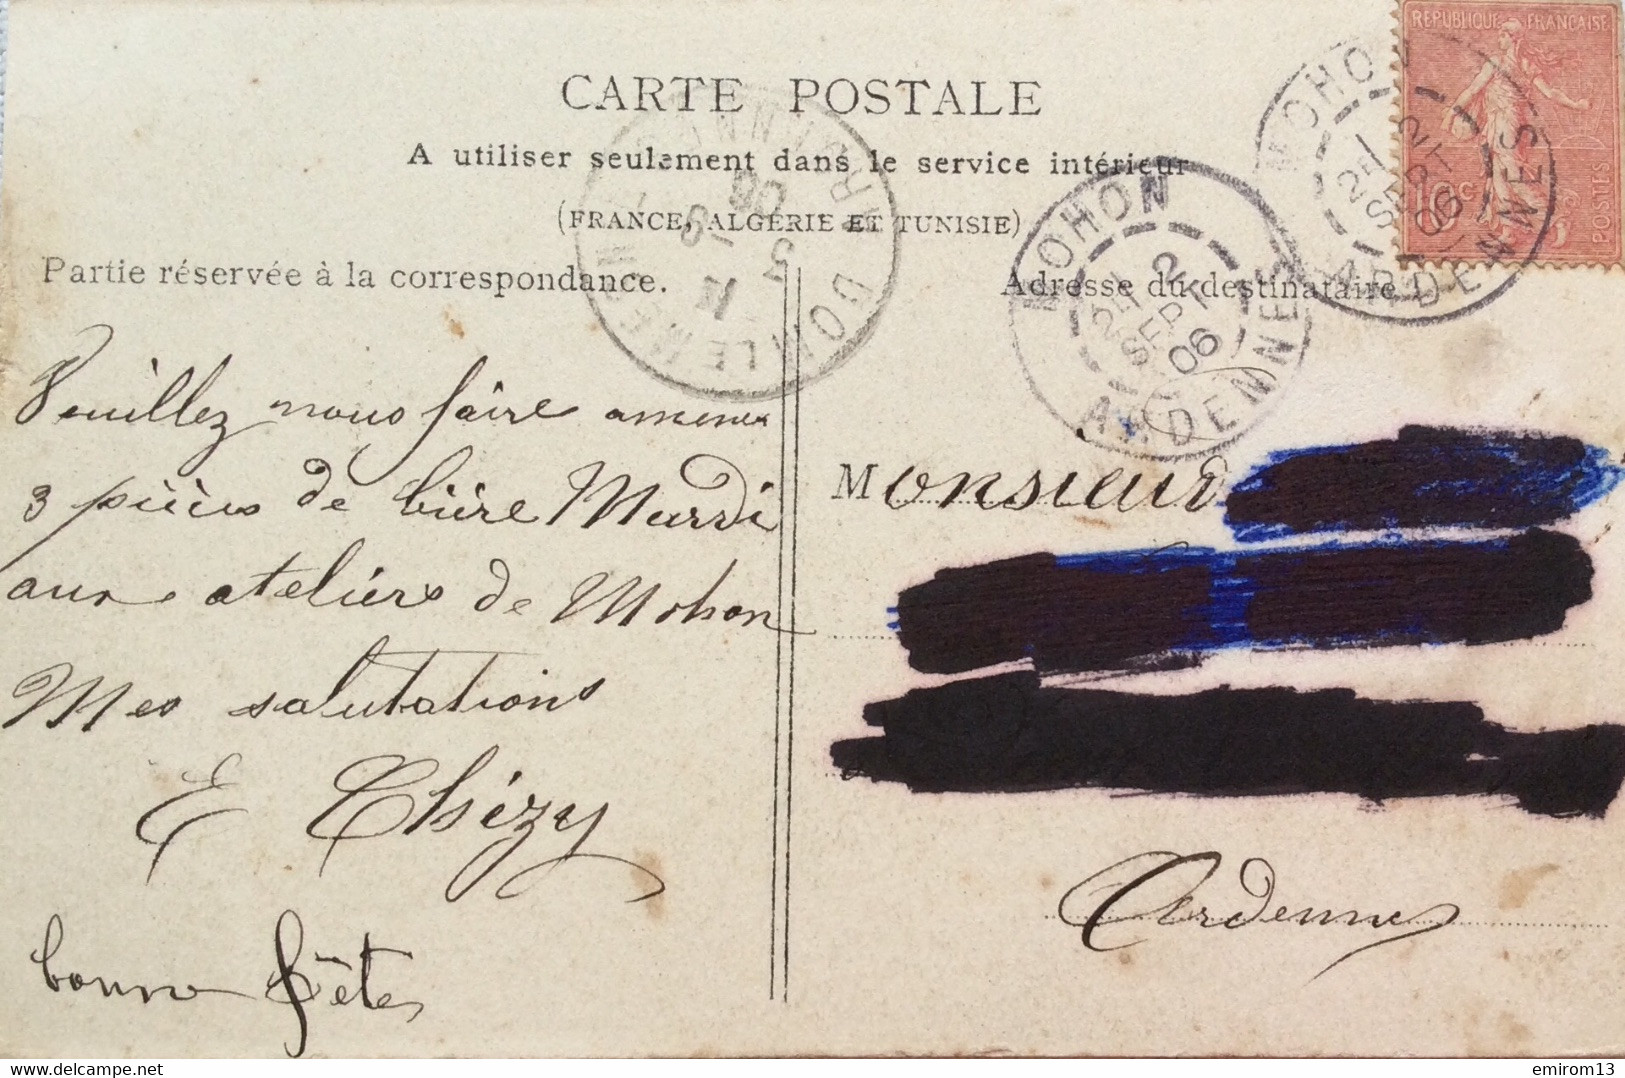 RÉPUBLIQUE FRANÇAISE
10c
POSTES
CARTE POSTALE
A utiliser seulement dans le service intérieur
(FRANCE, ALGÉRIE ET TUNISIE)
Partie réservée à la correspondance.
Adresse du destinataire
MOHON
2E / 2
SEPT
06
ARDENNES
MOHON
2E / 2
SEPT
06
ARDENNES
3 -9
06
Veuillez nous faire amener
3 pièces de bière Mardi
aux ateliers de Mohon
Mes salutations
E Thézy
bonne fête
Monsieur
Ardennes
delcampe.net
emirom13